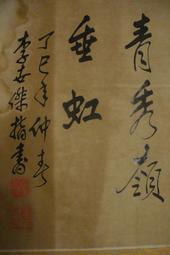 青秀嶺
垂虹
丁巳年仲春
李世傑指書